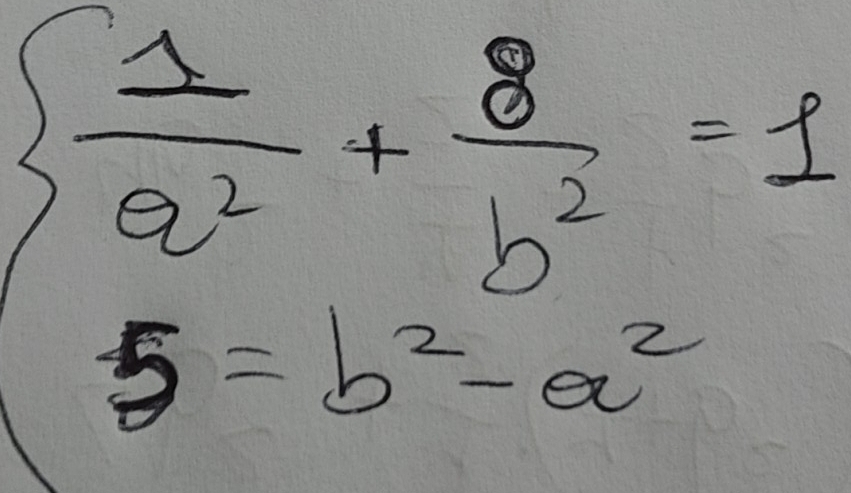 1/a² + 8/b² = 1
5 = b² - a²